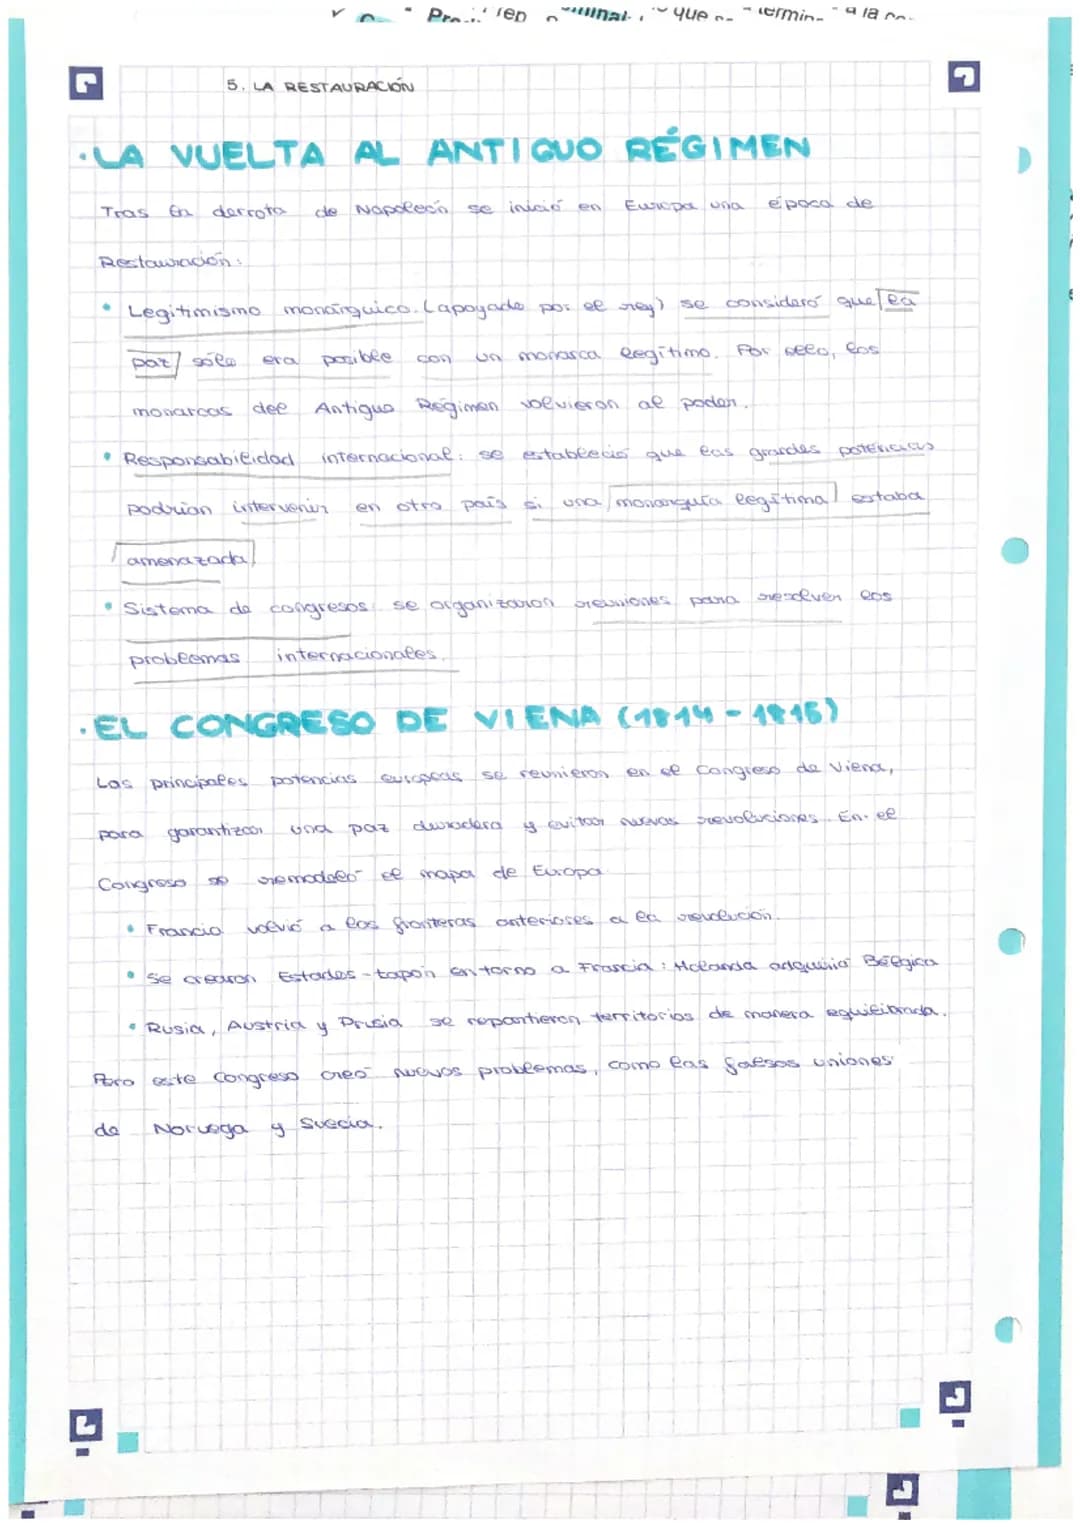 5. LA RESTAURACIÓN
·LA VUELTA AL ANTIGUO RÉGIMEN
Tras la derrota de Napoleón se inició en Europa una época de
Restauración:
• Legitimismo monárquico. (apoyado por el rey) se consideró que la
paz sólo era posible con un monarca legítimo. Por ello, los
monarcas del Antiguo Régimen volvieron al poder.
• Responsabilidad internacional: se estableció que las grandes potencias
podrían intervenir en otro país si una monarquía legítima estaba
amenazada.
• Sistema de congresos: se organizaron reuniones para resolver los
problemas internacionales.
·EL CONGRESO DE VIENA (1814-1815)
Las principales potencias europeas se reunieron en el Congreso de Viena,
para garantizar una paz duradera y evitar nuevas revoluciones. En el
Congreso se remodeló el mapa de Europa
• Francia volvió a las fronteras anteriores a la revolución.
• Se crearon Estados-tapón entorno a Francia: Holanda adquirió Bélgica
• Rusia, Austria y Prusia se repartieron territorios de manera equilibrada.
Pero este Congreso creó nuevos problemas, como las falsas uniones
de Noruega y Suecia.